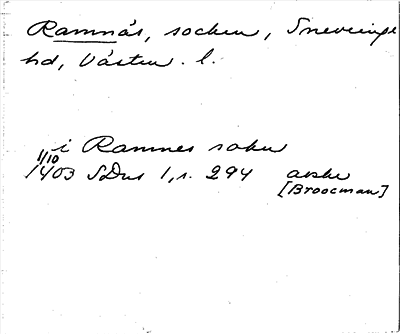 Ramnäs, socken, Snevringe
hd, Västm. l.
i Ramnes sokn
1/10
1403 SDns 1, s. 294 avskr
[Broocman]